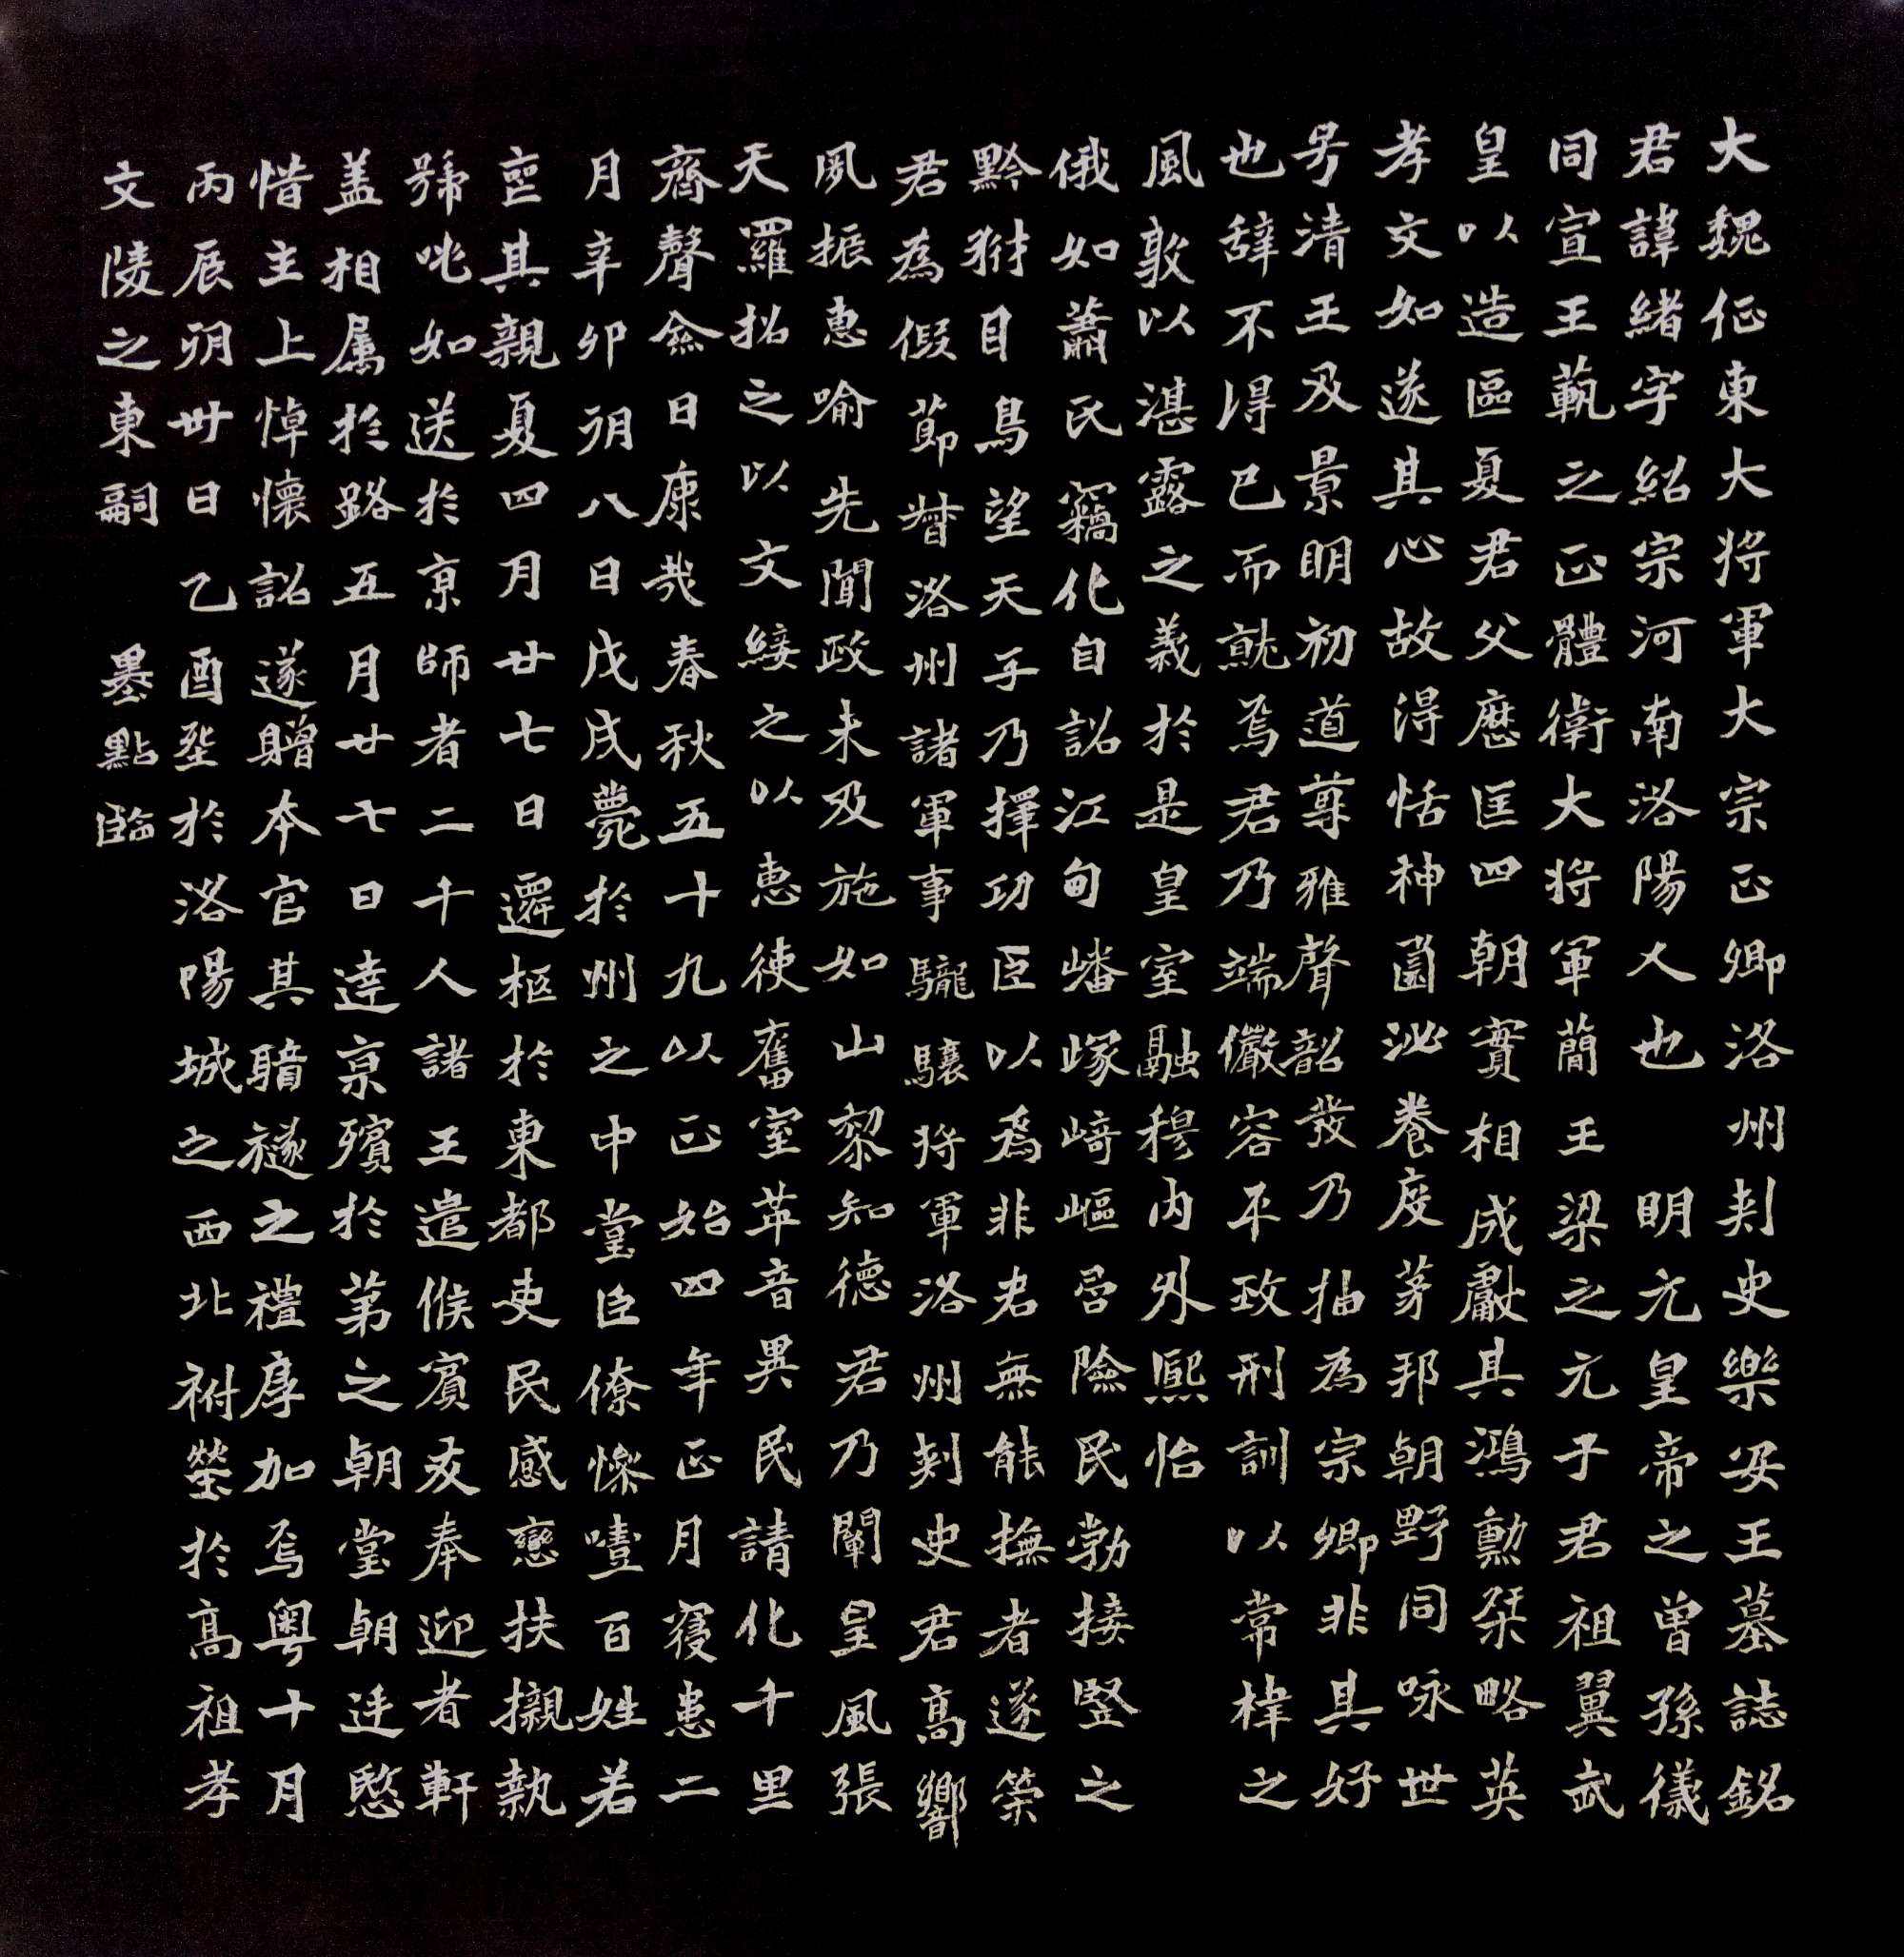 大魏征東大將軍大宗正卿洛州刾史樂安王墓誌銘
君諱緒字紹宗河南洛陽人也 明元皇帝之曾孫儀
同宣王範之正體衛大將軍簡王梁之元子君祖翼武
皇以造區夏君父歷匡四朝實相成獻其鴻勳桀略英
孝文如遂其心故得恬神園泌養度茅邦朝野同咏世
号清王及景明初道尊雅聲韶發乃抽為宗卿非其好
也辭不得已而就焉君乃端儼容平政刑訓以常棣之
風敦以湛露之義於是皇室融穆內外熙怡
俄如蕭氏竊化自詔江甸嶓冢崎嶇岩險民勃接豎之
黔犲目鳥望天子乃擇功臣以為非君無能撫者遂策
君為假節督洛州諸軍事龍驤將軍洛州刾史君高嚮
夙振惠喻先聞政未及施如山黎知德君乃闡皇風張
天羅招之以文綏之以惠使舊室革音異民請化千里
齊聲僉曰康哉春秋五十九以正始四年正月寢患二
月辛卯朔八日戊戌薨於州之中堂臣僚慘噎百姓若
喪其親夏四月廿七日遷柩於東都吏民感戀扶櫬執
號咷如送於京師者二千人諸王遣候賓友奉迎者軒
盖相属於路五月廿七日達京殯於第之朝堂朝廷愍
惜主上悼懷詔遂贈本官其賵襚之禮厚加焉粵十月
丙辰朔卅日乙酉葬於洛陽城之西北祔塋於高祖孝
文陵之東嗣 墨點臨